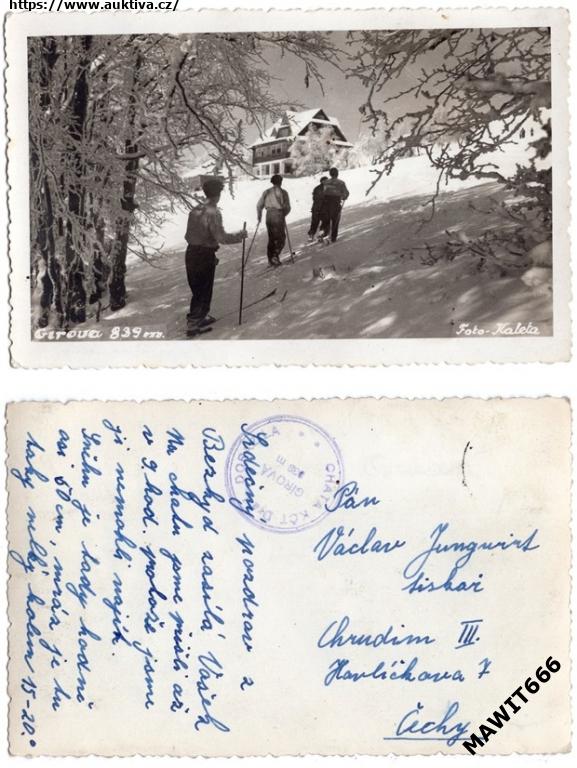 https://www.auktiva.cz/
Girova 839 m.
Foto-Kaleta
Srdečný pozdrav z
Bezkyd zasílá Vašek
Na chatu jsme přišli až
v 9 hod. protože jsme
ji nemohli najít.
Sněhu je tady hodně
asi 50 cm, mráz je tu
taky velký kolem 15-20°
CHATA KČT
GÍROVÁ
839 m
Pán
Václav Jungwirt
tiskař
Chrudim III.
Havlíčkova 7
Čechy
MAWIT666